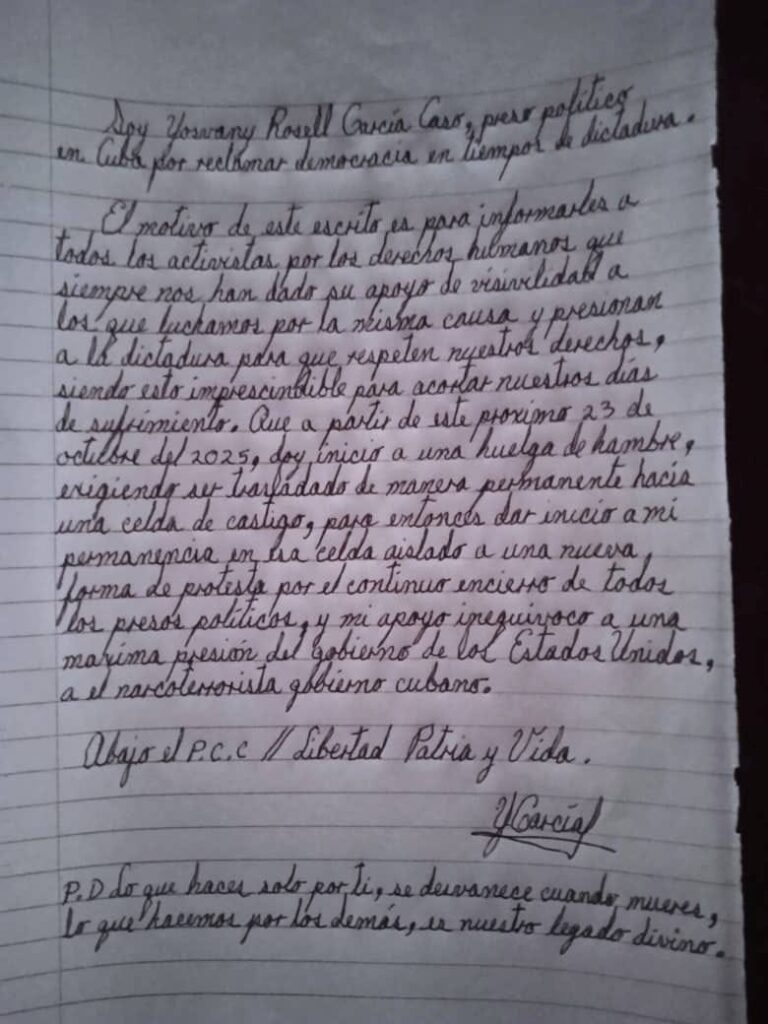 Soy Yosvany Rosell García Caso, preso político
en Cuba por reclamar democracia en tiempos de dictadura.
El motivo de este escrito es para informarles a
todos los activistas por los derechos humanos que
siempre nos han dado su apoyo de visivilidad a
los que luchamos por la misma causa y presionan
a la dictadura para que respeten nuestros derechos,
siendo esto imprescindible para acortar nuestros días
de sufrimiento. Que a partir de este proximo 23 de
octubre del 2025, doy inicio a una huelga de hambre,
exigiendo ser trasladado de manera permanente hacia
una celda de castigo, para entonces dar inicio a mi
permanencia en esa celda aislado a una nueva
forma de protesta por el continuo encierro de todos
los presos políticos, y mi apoyo inequivoco a una
maxima presión del gobierno de los Estados Unidos,
a el narcoterrorista gobierno cubano.
Abajo el P.C.C // Libertad Patria y Vida.
YGarcía
P.D Lo que haces solo por ti, se desvanece cuando mueres,
lo que hacemos por los demás, es nuestro legado divino.